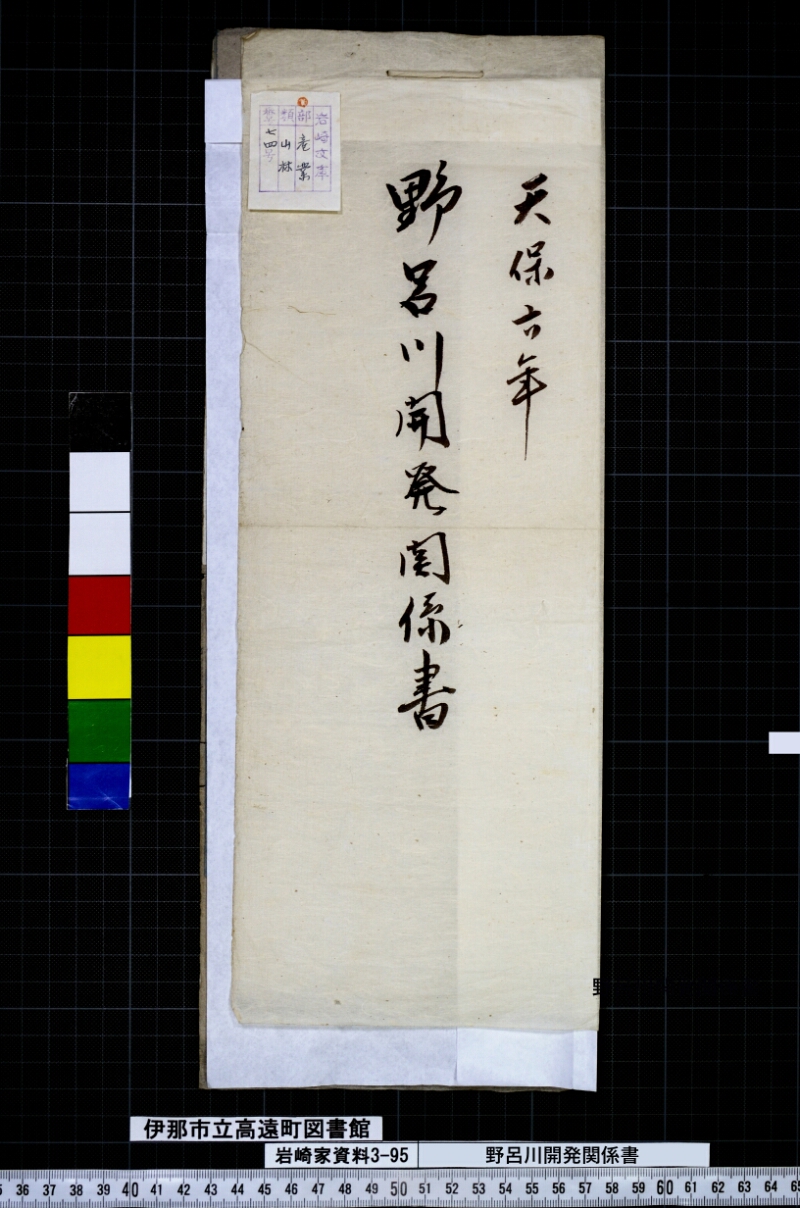 天保六年
野呂川開発関係書
岩崎文庫
部 産業
類 山林
整 七四号
野
伊那市立高遠町図書館
岩崎家資料3-95
野呂川開発関係書
36 37 38 39 40 41 42 43 44 45 46 47 48 49 50 51 52 53 54 55 56 57 58 59 60 61 62 63 64